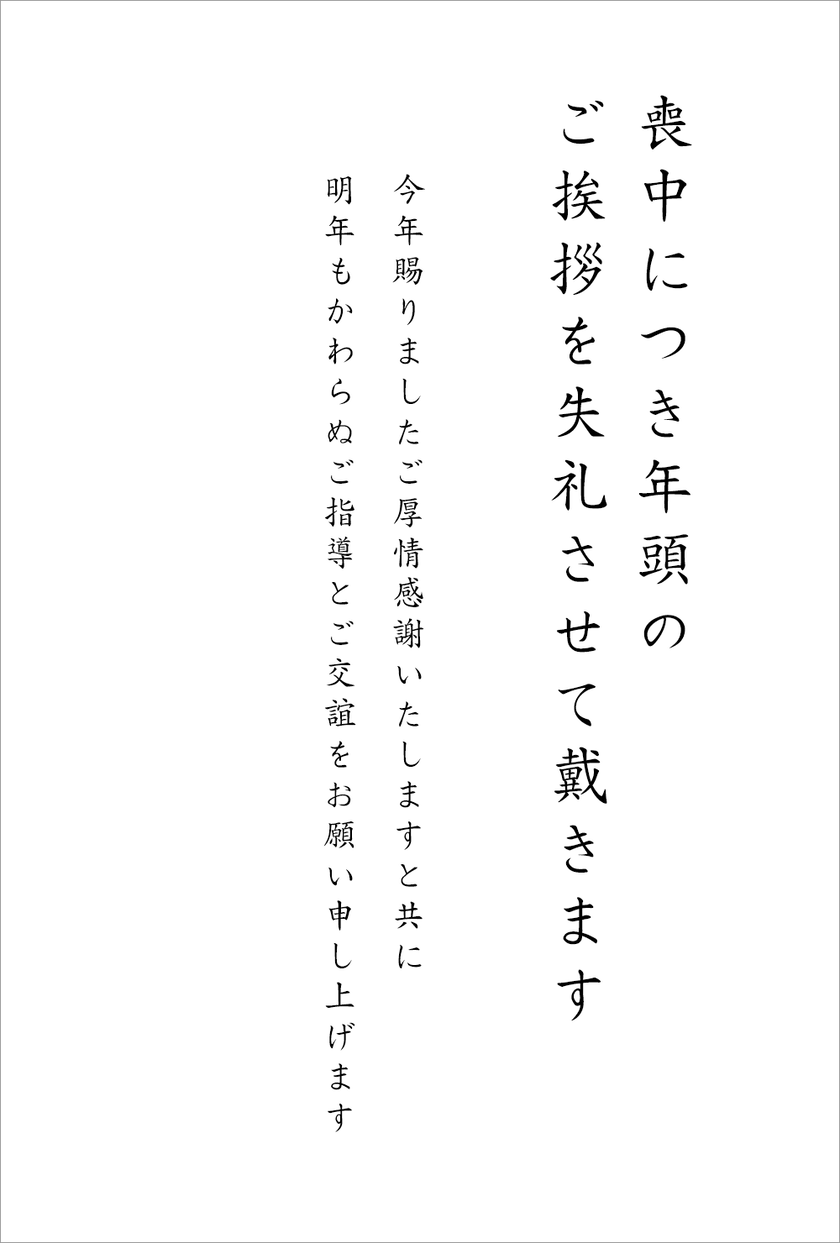 喪中につき年頭の
ご挨拶を失礼させて戴きます
今年賜りましたご厚情感謝いたしますと共に
明年もかわらぬご指導とご交誼をお願い申し上げます